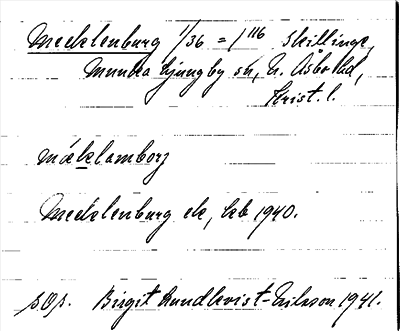 Mecklenburg 1/36 = 1116 Skillinge,
Munka Ljungby sn, N. Åsbo hd,
Krist. l.
mäklamborj
Mecklenburg ek, bb 1940.
s.O.s. Birgit Lundkvist-Eriksson 1941.